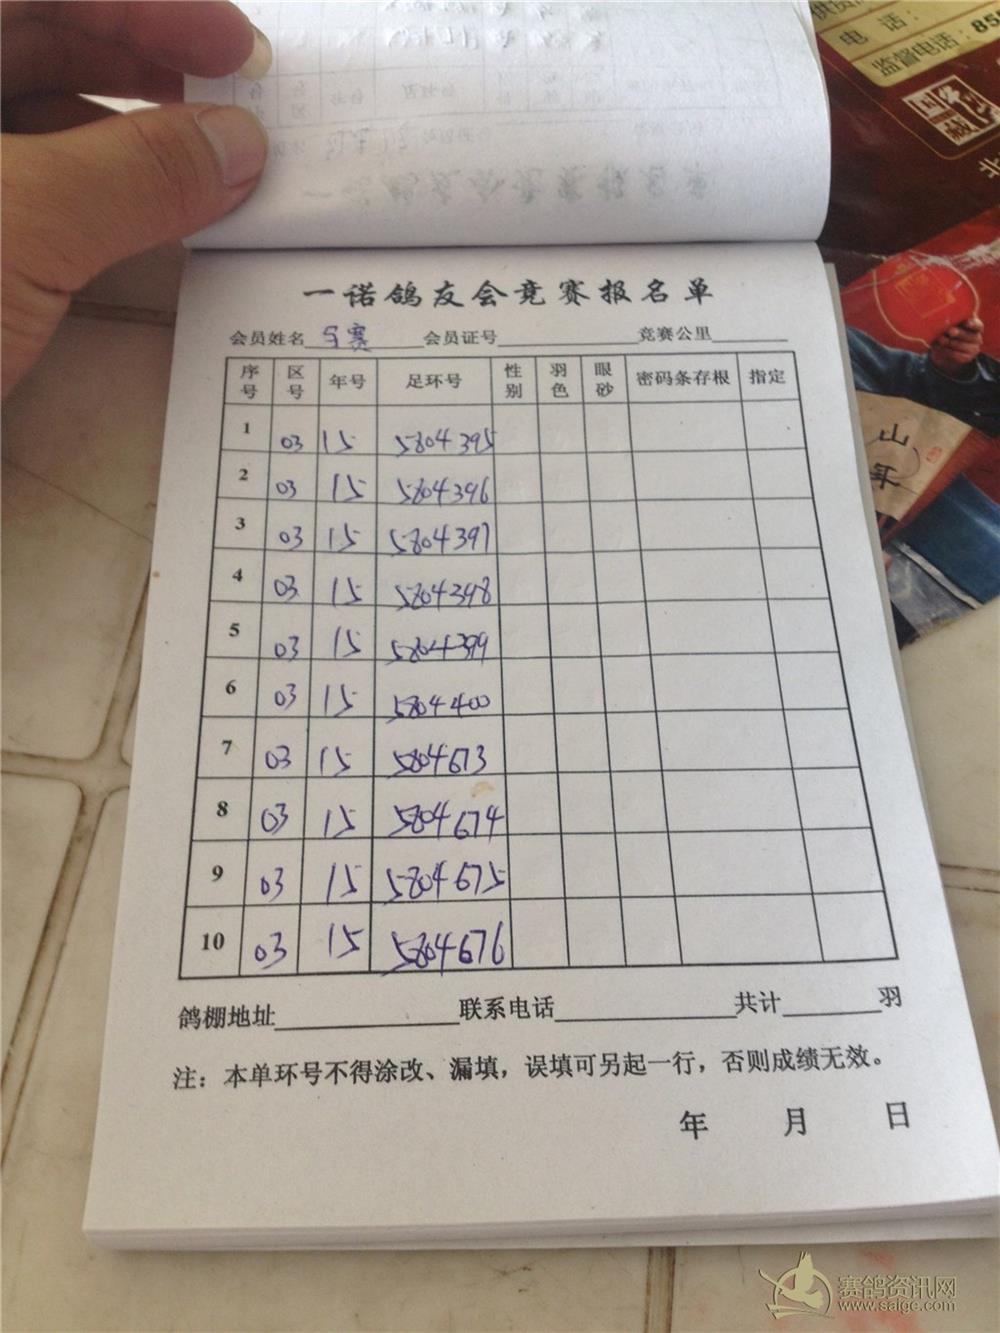 电 话：
监督电话：85
国
藏
山
年
一诺鸽友会竞赛报名单
会员姓名 会员证号 竞赛公里
序号 区号 年号 足环号 性别 羽色 眼砂 密码条存根 指定
1 03 15 5804395
2 03 15 5804396
3 03 15 5804397
4 03 15 5804398
5 03 15 5804399
6 03 15 5804400
7 03 15 5804673
8 03 15 5804674
9 03 15 5804675
10 03 15 5804676
鸽棚地址 联系电话 共计 羽
注：本单环号不得涂改、漏填，误填可另起一行，否则成绩无效。
年 月 日
赛鸽资讯网
www.saige.com